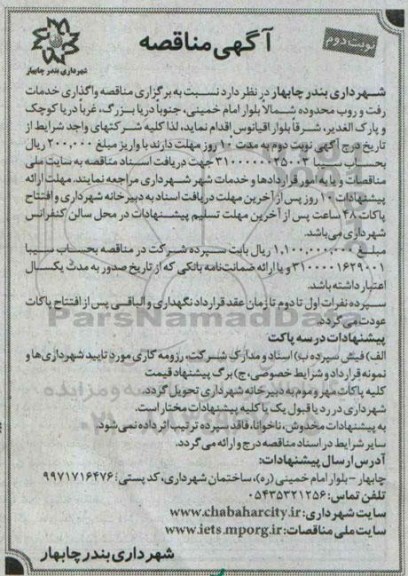 آگهی مناقصه
نوبت دوم
شهرداری بندر چابهار
شهرداری بندر چابهار در نظر دارد نسبت به برگزاری مناقصه واگذاری خدمات
رفت و روب محدوده شمالاً بلوار امام خمینی، جنوباً دریا بزرگ، غرباً دریا کوچک
و پارک الغدیر، شرقاً بلوار اقیانوس اقدام نماید، لذا کلیه شرکتهای واجد شرایط از
تاریخ درج آگهی نوبت دوم به مدت ۱۰ روز مهلت دارند با واریز مبلغ ۲۰۰,۰۰۰ ریال
بحساب سیبا جهت دریافت اسناد مناقصه به سایت ملی
مناقصات و یا به امور قراردادها و خدمات شهر شهرداری مراجعه نمایند. مهلت ارائه
پیشنهادات ۱۰ روز پس از آخرین مهلت دریافت اسناد به دبیرخانه شهرداری و افتتاح
پاکات ۴۸ ساعت پس از آخرین مهلت تسلیم پیشنهادات در محل سالن کنفرانس
شهرداری می‌باشد.
مبلغ ۱,۱۰۰,۰۰۰,۰۰۰ ریال بابت سپرده شرکت در مناقصه بحساب سیبا
۳۱۰۰۰۰۱۶۲۹۰۰۱ و یا ارائه ضمانت‌نامه بانکی که از تاریخ صدور به مدت یکسال
اعتبار داشته باشد.
سپرده نفرات اول تا دوم تا زمان عقد قرارداد نگهداری و الباقی پس از افتتاح پاکات
عودت می‌گردد.
پیشنهادات در سه پاکت
الف) فیش سپرده ب) اسناد و مدارک شرکت، رزومه کاری مورد تایید شهرداری‌ها و
نمونه قرارداد و شرایط خصوصی، ج) برگ پیشنهاد قیمت
کلیه پاکات مهر و موم به دبیرخانه شهرداری تحویل گردد.
شهرداری در رد یا قبول یک یا کلیه پیشنهادات مختار است.
به پیشنهادات مخدوش، ناخوانا، فاقد سپرده ترتیب اثر داده نمی‌شود
سایر شرایط در اسناد مناقصه درج و ارائه می‌گردد.
آدرس ارسال پیشنهادات:
چابهار - بلوار امام خمینی (ره)، ساختمان شهرداری، کد پستی: ۹۹۷۱۷۱۶۴۷۶
تلفن تماس: ۰۵۴۳۵۳۲۱۲۵۶
سایت شهرداری: www.chabaharcity.ir
سایت ملی مناقصات: www.iets.mporg.ir
شهرداری بندر چابهار
ParsNamadData